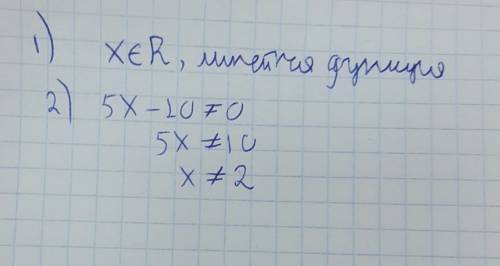 1) x∈R, линейная функция
2) 5x-10≠0
5x≠10
x≠2